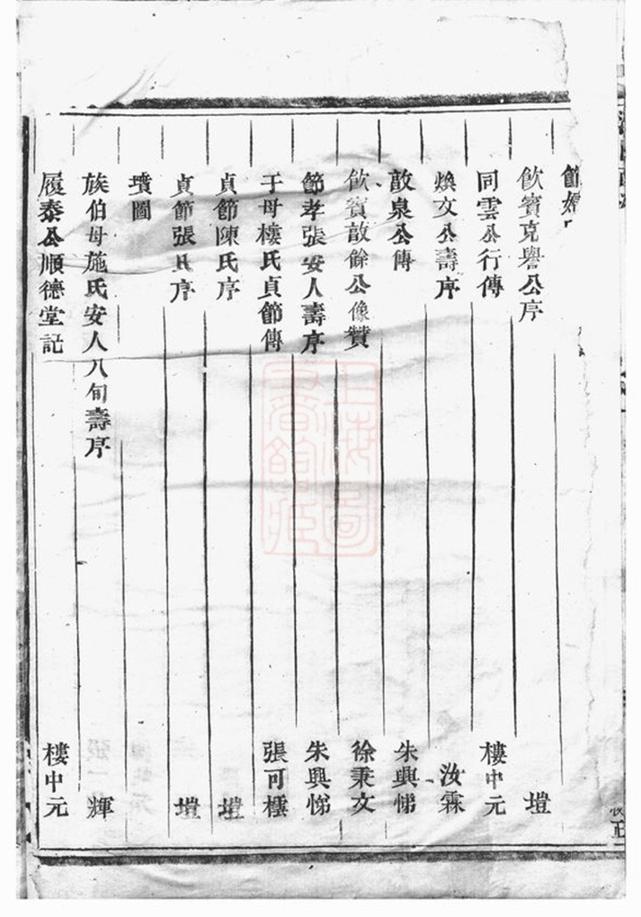 節
飲賓克譽公序 塏
同雲公行傳 樓中元
煥文公壽序 汝霖
敿泉公傳 朱興悌
飲賓敿餘公像贊 徐秉文
節孝張安人壽序 朱興悌
子母樓氏貞節傳 張可樞
貞節陳氏序 塏
貞節張氏序 塏
墳圖
族伯母施氏安人八旬壽序 輝
履泰公順德堂記 樓中元
上海圖書館藏